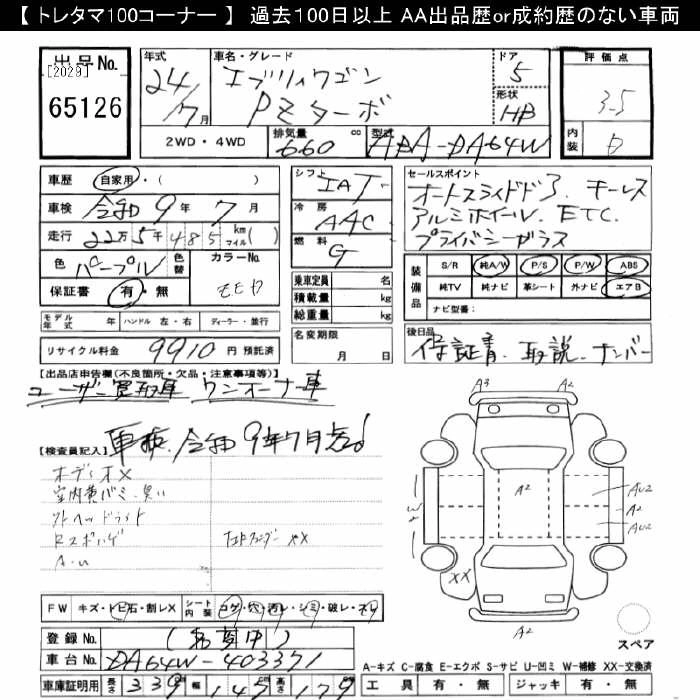 【 トレタマ100コーナー 】 過去100日以上 AA出品歴or成約歴のない車両
出品No.
[2029]
65126
年式
24/7月
車名・グレード
エブリィワゴン
PZターボ
ドア
5
形状
HB
評価点
3.5
内装
D
2WD・4WD
排気量
660 cc
型式
ABA-DA64W
車歴
自家用・( )
車検
令和9年7月
走行
22万5千485 km マイル( )
色
パープル
色替
カラーNo.
保証書
有・無
シフト
IAT
冷房
AAC
燃料
G
乗車定員 名
積載量 kg
総重量 kg
セールスポイント
オートスライドドア. キーレス
アルミホイール. ETC.
プライバシーガラス
装備品
S/R 純A/W P/S P/W ABS
純TV 純ナビ 革シート 外ナビ エアB
ナビ型番:
モデル年式 年 ハンドル 左・右 ディーラー・並行
名変期限
月 日
後日品
保証書. 取説. ナンバー
リサイクル料金 9910 円 預託済
【出品店申告欄(不良箇所・欠品・注意事項等)】
ユーザー買取車 ワンオーナー車
車検 令和9年7月迄!
【検査員記入】
オーディオX
室内黄バミ・臭い
ソトヘッドライト
Rスポハゲ
A.U
A3 A2
A2
AU2
A2
AU2
W2
XX
A2
スペア
FW キズ・トビ石・割レX シート内装 コゲ・穴・汚レ・シミ・破レ・スレ
登録No.
車台No. DA64W-403371
車庫証明用 長さ 339 幅 147 高さ 179
A-キズ C-腐食 E-エクボ S-サビ U-凹ミ W-補修 XX-交換済
工具 有・無 ジャッキ 有・無